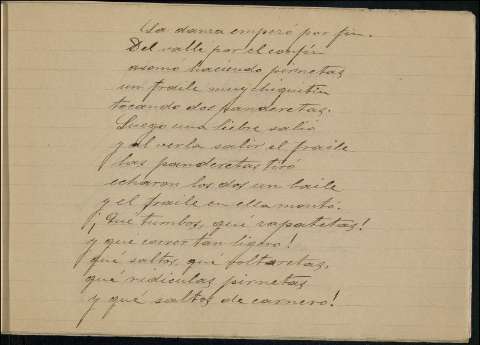 La danza empezó por fin.
Del valle por el confín
asomó haciendo piruetas
un fraile muy chiquitín
tocando dos panderetas.
Luego una liebre salió
y al verla salir el fraile
las panderetas tiró
echaron los dos un baile
y el fraile en ella montó.
¡Qué tumbos, qué zapatetas!
y qué correr tan ligero!
qué saltos, qué voltaretas,
qué ridículas piruetas
y qué saltos de carnero!